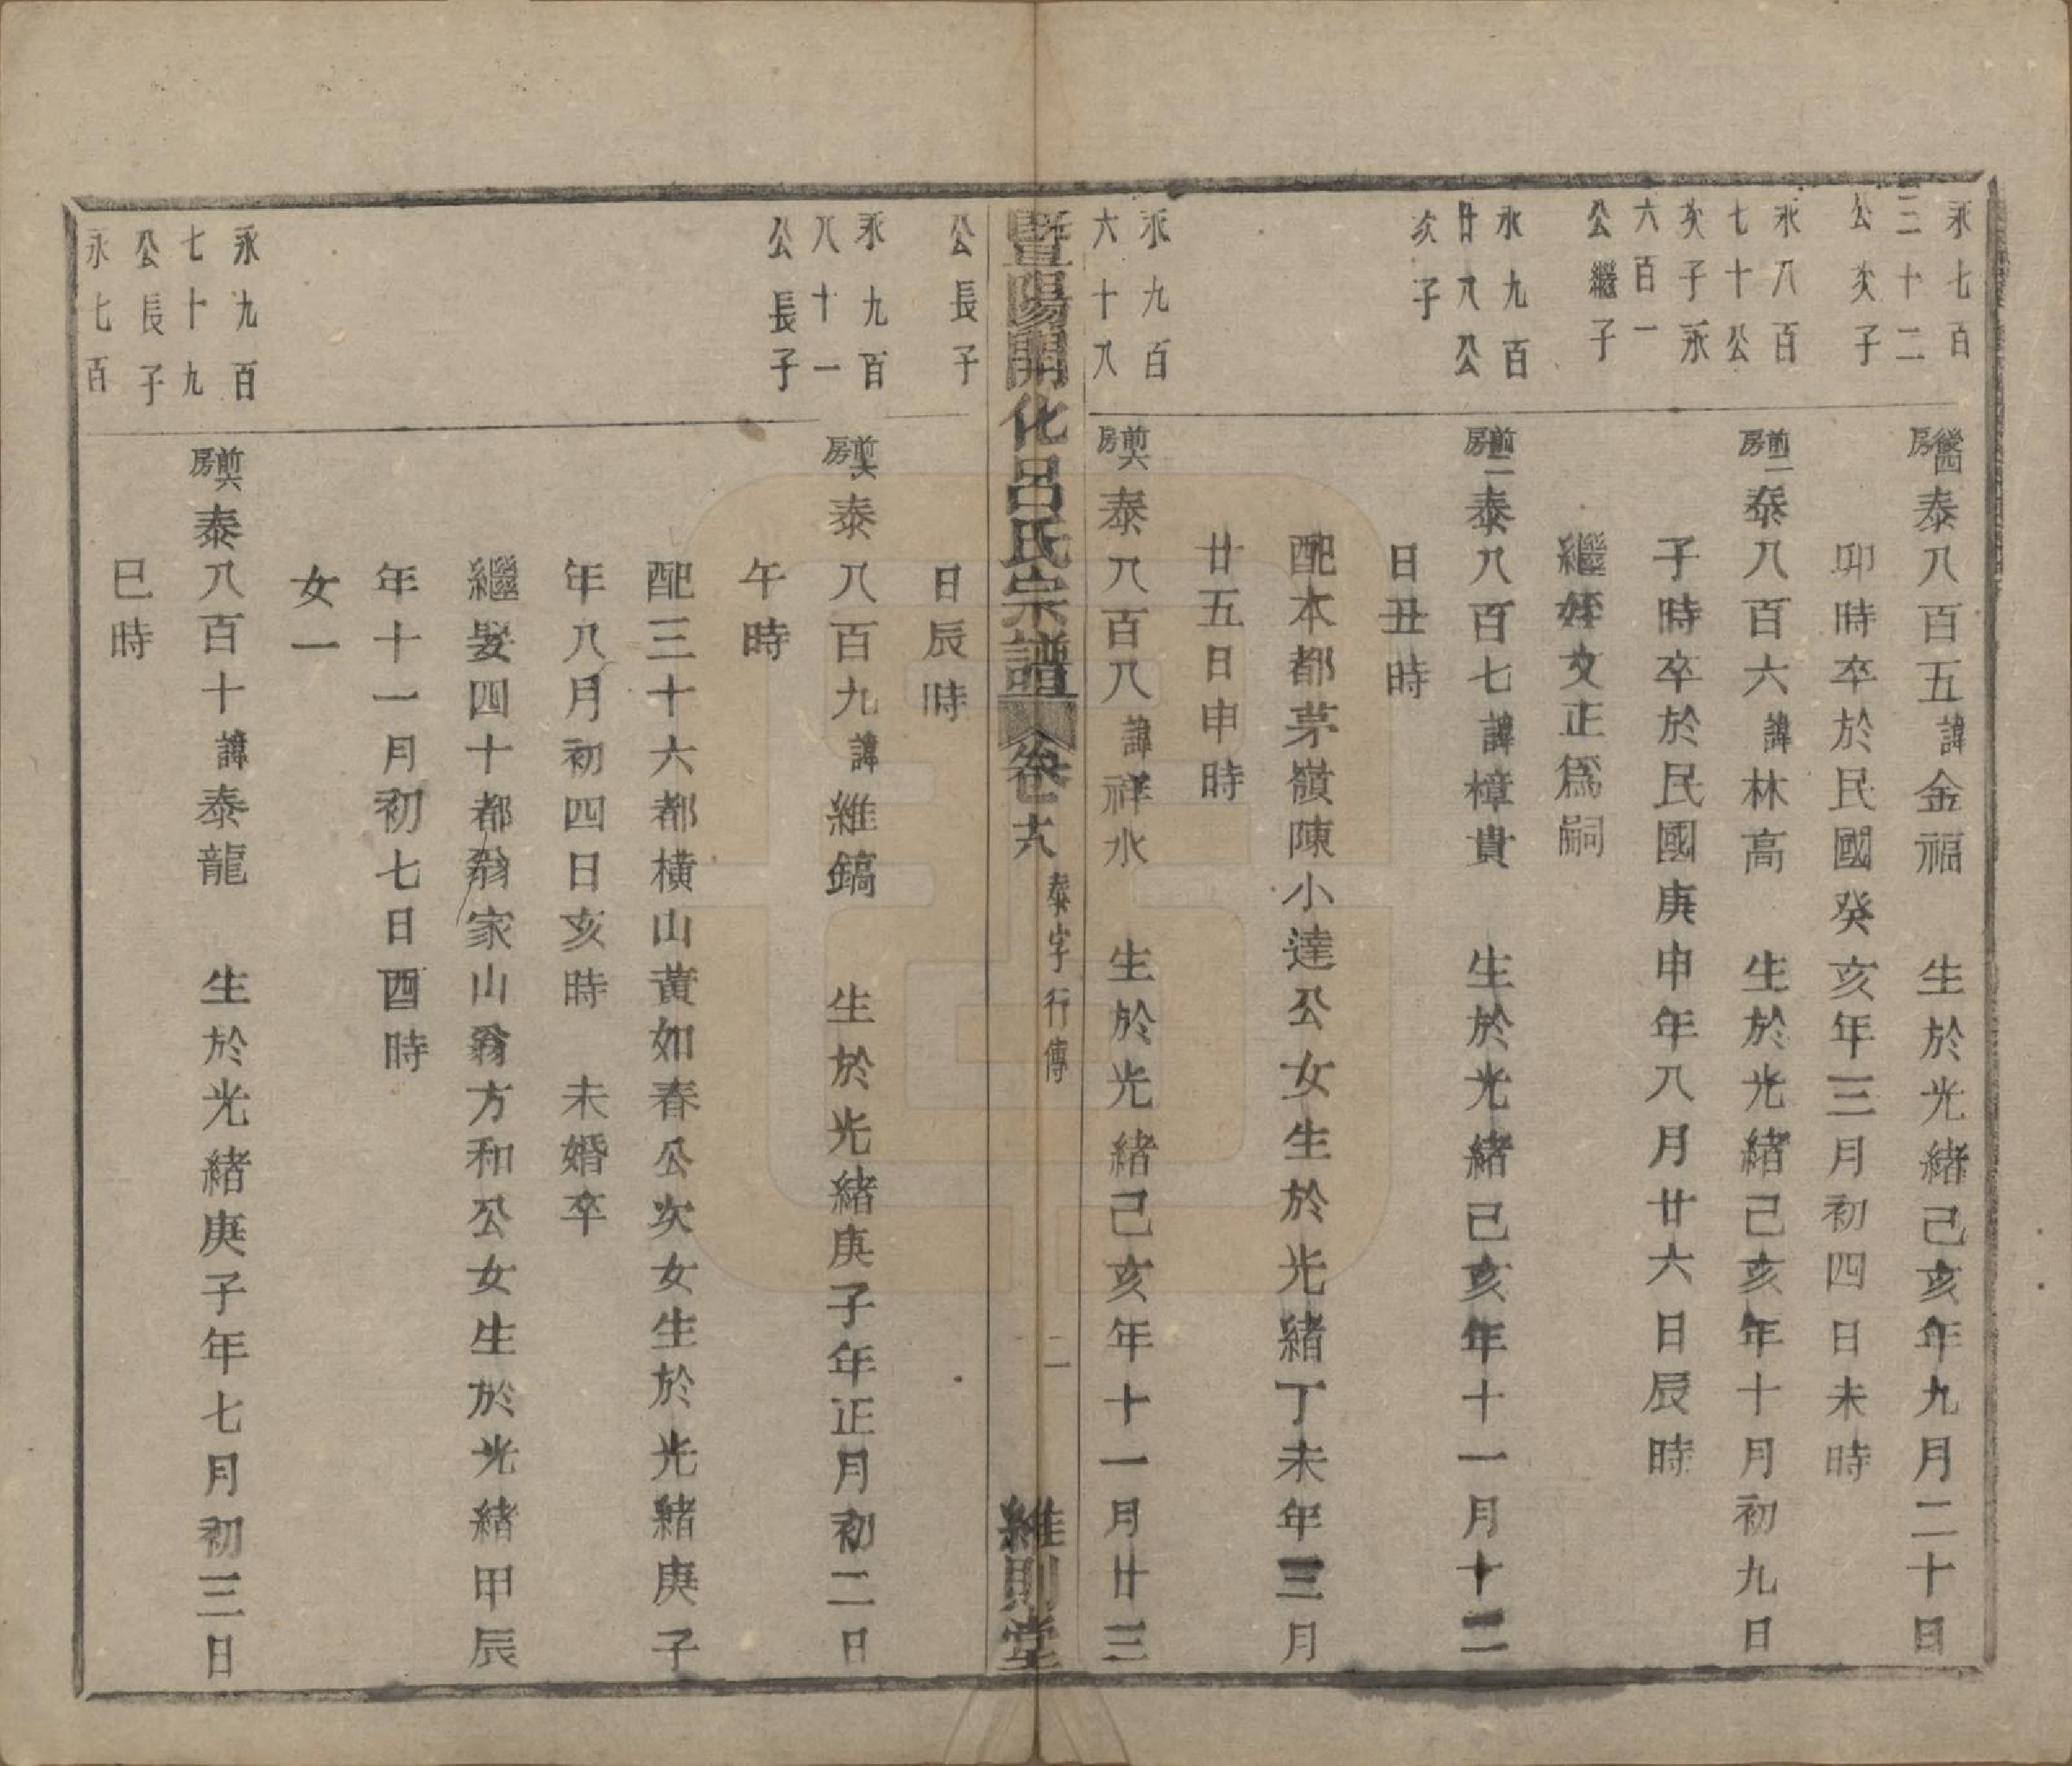 永七百
三十二
公次子
永八百
七十公
次子永
六百一
公繼子
永九百
廿八公
次子
永九百
六十八
泰八百五諱金福 生於光緒己亥年九月二十日
卯時卒於民國癸亥年三月初四日未時
前二房
泰八百六諱林高 生於光緒己亥年十月初九日
子時卒於民國庚申年八月廿六日辰時
繼姪文正爲嗣
前二房
泰八百七諱樟貴 生於光緒己亥年十一月十二
日丑時
配本都茅嶺陳小達公女生於光緒丁未年三月
廿五日申時
前六房
泰八百八諱祥水 生於光緒己亥年十一月廿三
暨陽開化呂氏宗譜 卷十六 泰字行傳 二 維則堂
公長子
永九百
八十一
公長子
永九百
七十九
公長子
永七百
日辰時
前六房
泰八百九諱維鎬 生於光緒庚子年正月初二日
午時
配三十六都橫山黃如春公次女生於光緒庚子
年八月初四日亥時 未婚卒
繼娶四十都翁家山翁方和公女生於光緒甲辰
年十一月初七日酉時
女一
前六房
泰八百十諱泰龍 生於光緒庚子年七月初三日
巳時